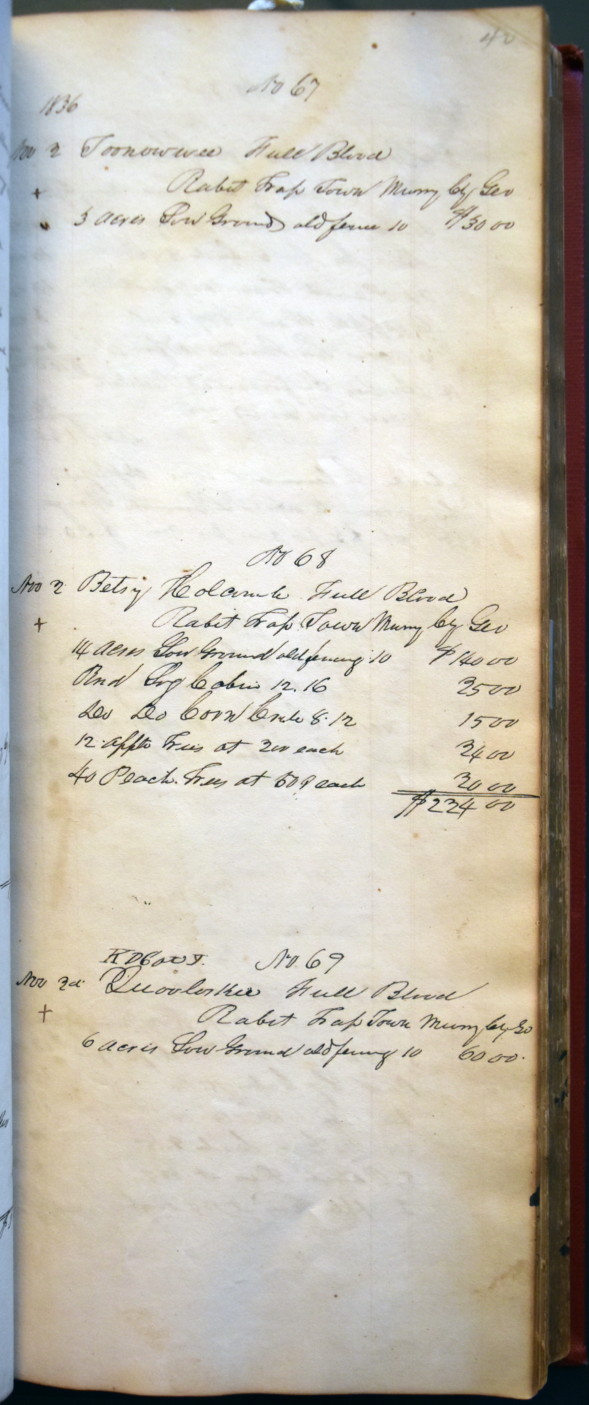 40
No 67
1836
Nov 2 Toonowwee Full Blood
+ Rabit Trap Town Murry Cty Geo
3 acres Low Ground old fence 10 $30 00
No 68
Nov 2 Betsy Holcomb Full Blood
+ Rabit Trap Town Murry Cty Geo
14 acres Low Ground old fencing 10 $140 00
Rnd Log Cabin 12.16 25 00
Do Do Corn Crib 8.12 15 00
12 apple Trees at 200 each 24 00
40 Peach Trees at 50 each 20 00
$224 00
No 69
Nov 2d Full Blood
+ Rabit Trap Town Murry Cty Geo
6 acres Low Ground old fencing 10 60 00